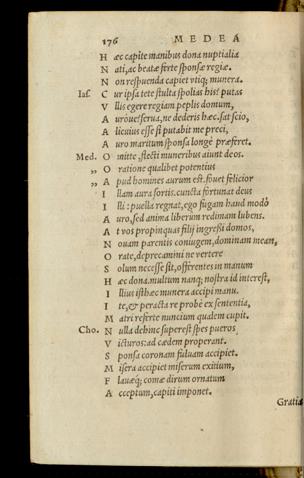 176 MEDEA
H æc capite manibus dona nuptialia
N ati, ac beatæ ferte sponsæ regiæ.
N on respuenda capiet utiq; munera.
Ias. C ur ipsa tete stulta spolias his? putas
V llis egere regiam peplis domum,
A uróue? serua, ne dederis hæc. sat scio,
A licuius esse si putabit me preci,
A uro maritum sponsa longè præferet.
Med. O mitte, flecti muneribus aiunt deos.
O ratione qualibet potentius
„ A pud homines aurum est. fouet felicior
I llam aura sortis. cuncta fortunat deus
I lli: puella regnat, ego fugam haud modò
A uro, sed anima liberum redimam lubens.
A t uos propinquas filij ingreßi domos,
N ouam parentis coniugem, dominam meam,
O rate, deprecamini ne uertere
S olum necesse sit, offerentes in manum
H æc dona. multum nanq; nostra id interest,
I llius isthæc munera accipi manu.
I te, & peracta re probè ex sententia,
M atri referte nuncium qualem cupit.
Cho. N ulla dehinc superest spes pueros
V icturos: ad cædem properant.
S ponsa coronam fuluam accipiet.
M isera accipiet miserum exitium,
F lauæq; comæ dirum ornatum
A cceptum, capiti imponet.
Gratia